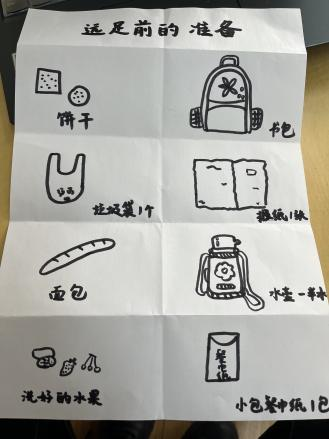 远足前的准备
饼干
书包
垃圾袋1个
报纸1张
面包
水壶一半水
洗好的水果
餐巾纸
小包餐巾纸1包